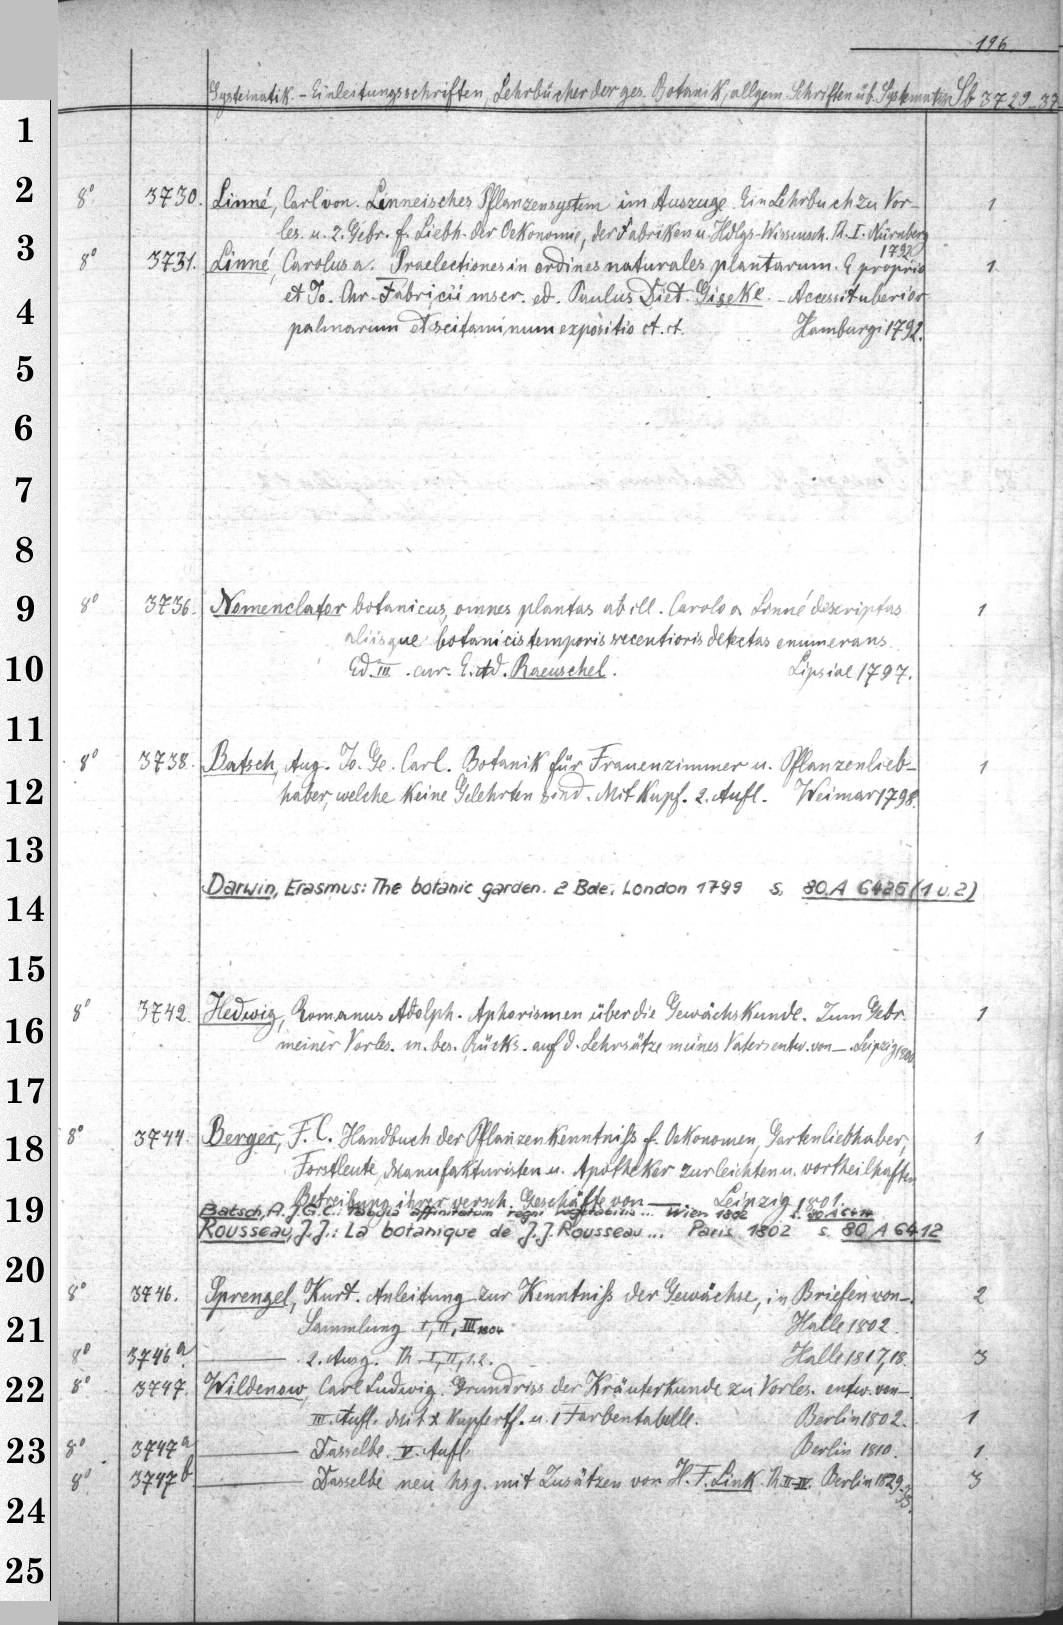 196.
Systematik. - Einleitungsschriften, Lehrbücher der ges. Botanik, allgem. Schriften üb. Systematik Sb 3729-37
1
2 8° 3730. Linné, Carl von. Linneisches Pflanzensystem im Auszuge. Ein Lehrbuch zu Vor- 1
les. u. z. Gebr. f. Liebh. der Oekonomie, der Fabriken u. Hdlgs-Wissensch. Th. I. Nürnberg
1792
3 8° 3731. Linné, Carolus a. Praelectiones in ordines naturales plantarum. E proprio 1
4 et Jo. Chr. Fabricii mscr. ed. Paulus Diet. Giseke. - Accessit uberior
palmarum et scitaminum expositio ct. ct. Hamburgi 1792.
5
6
7
8
9 8° 3736. Nomenclator botanicus, omnes plantas ab ill. Carolo a Linné descriptas 1
aliisque botanicis temporis recentioris detectas enumerans
10 Ed. III. cur. E. Ad. Raeuschel. Lipsiae 1797.
11
8° 3738. Batsch, Aug. Jo. Ge. Carl. Botanik für Frauenzimmer u. Pflanzenlieb- 1
12 haber, welche keine Gelehrten sind. Mit Kupf. 2. Aufl. Weimar 1798.
13
14 Darwin, Erasmus: The botanic garden. 2 Bde. London 1799 s. 80 A 6425 (1 u. 2)
15
16 8° 3742. Hedwig, Romanus Adolph. Aphorismen über die Gewächskunde. Zum Gebr. 1
meiner Vorles. m. bes. Rücks. auf d. Lehrsätze meines Vaters entw. von —. Leipzig 1800
17
18 8° 3744. Berger, F. C. Handbuch der Pflanzenkenntniß f. Oekonomen, Gartenliebhaber, 1
Forstleute, Manufakturisten u. Apotheker zur leichten u. vortheilhaften
Betreibung ihrer versch. Geschäfte von — Leipzig 1801.
19 Batsch, A. J. G. C.: Tabula affinitatum regni vegetabilis... Wien 1802 s. 80 A 6414
Rousseau, J. J.: La botanique de J. J. Rousseau... Paris 1802 s. 80 A 6412
20 8° 3746. Sprengel, Kurt. Anleitung zur Kenntniß der Gewächse, in Briefen von —. 2
21 Sammlung I, II, III 1804 Halle 1802.
8° 3746 a. —— 2. Ausg. Th. I, II, 1. 2. Halle 1817, 18. 3
22 8° 3747. Wildenow, Carl Ludwig. Grundriss der Kräuterkunde zu Vorles. entw. von —.
III. Aufl. Mit x Kupfertf. u. 1 Farbentabelle. Berlin 1802. 1
23 8° 3747 a —— Dasselbe. V. Aufl. Berlin 1810. 1
8° 3747 b —— Dasselbe neu hsg. mit Zusätzen von H. F. Link. Th II-IV. Berlin 1829-33. 3
24
25